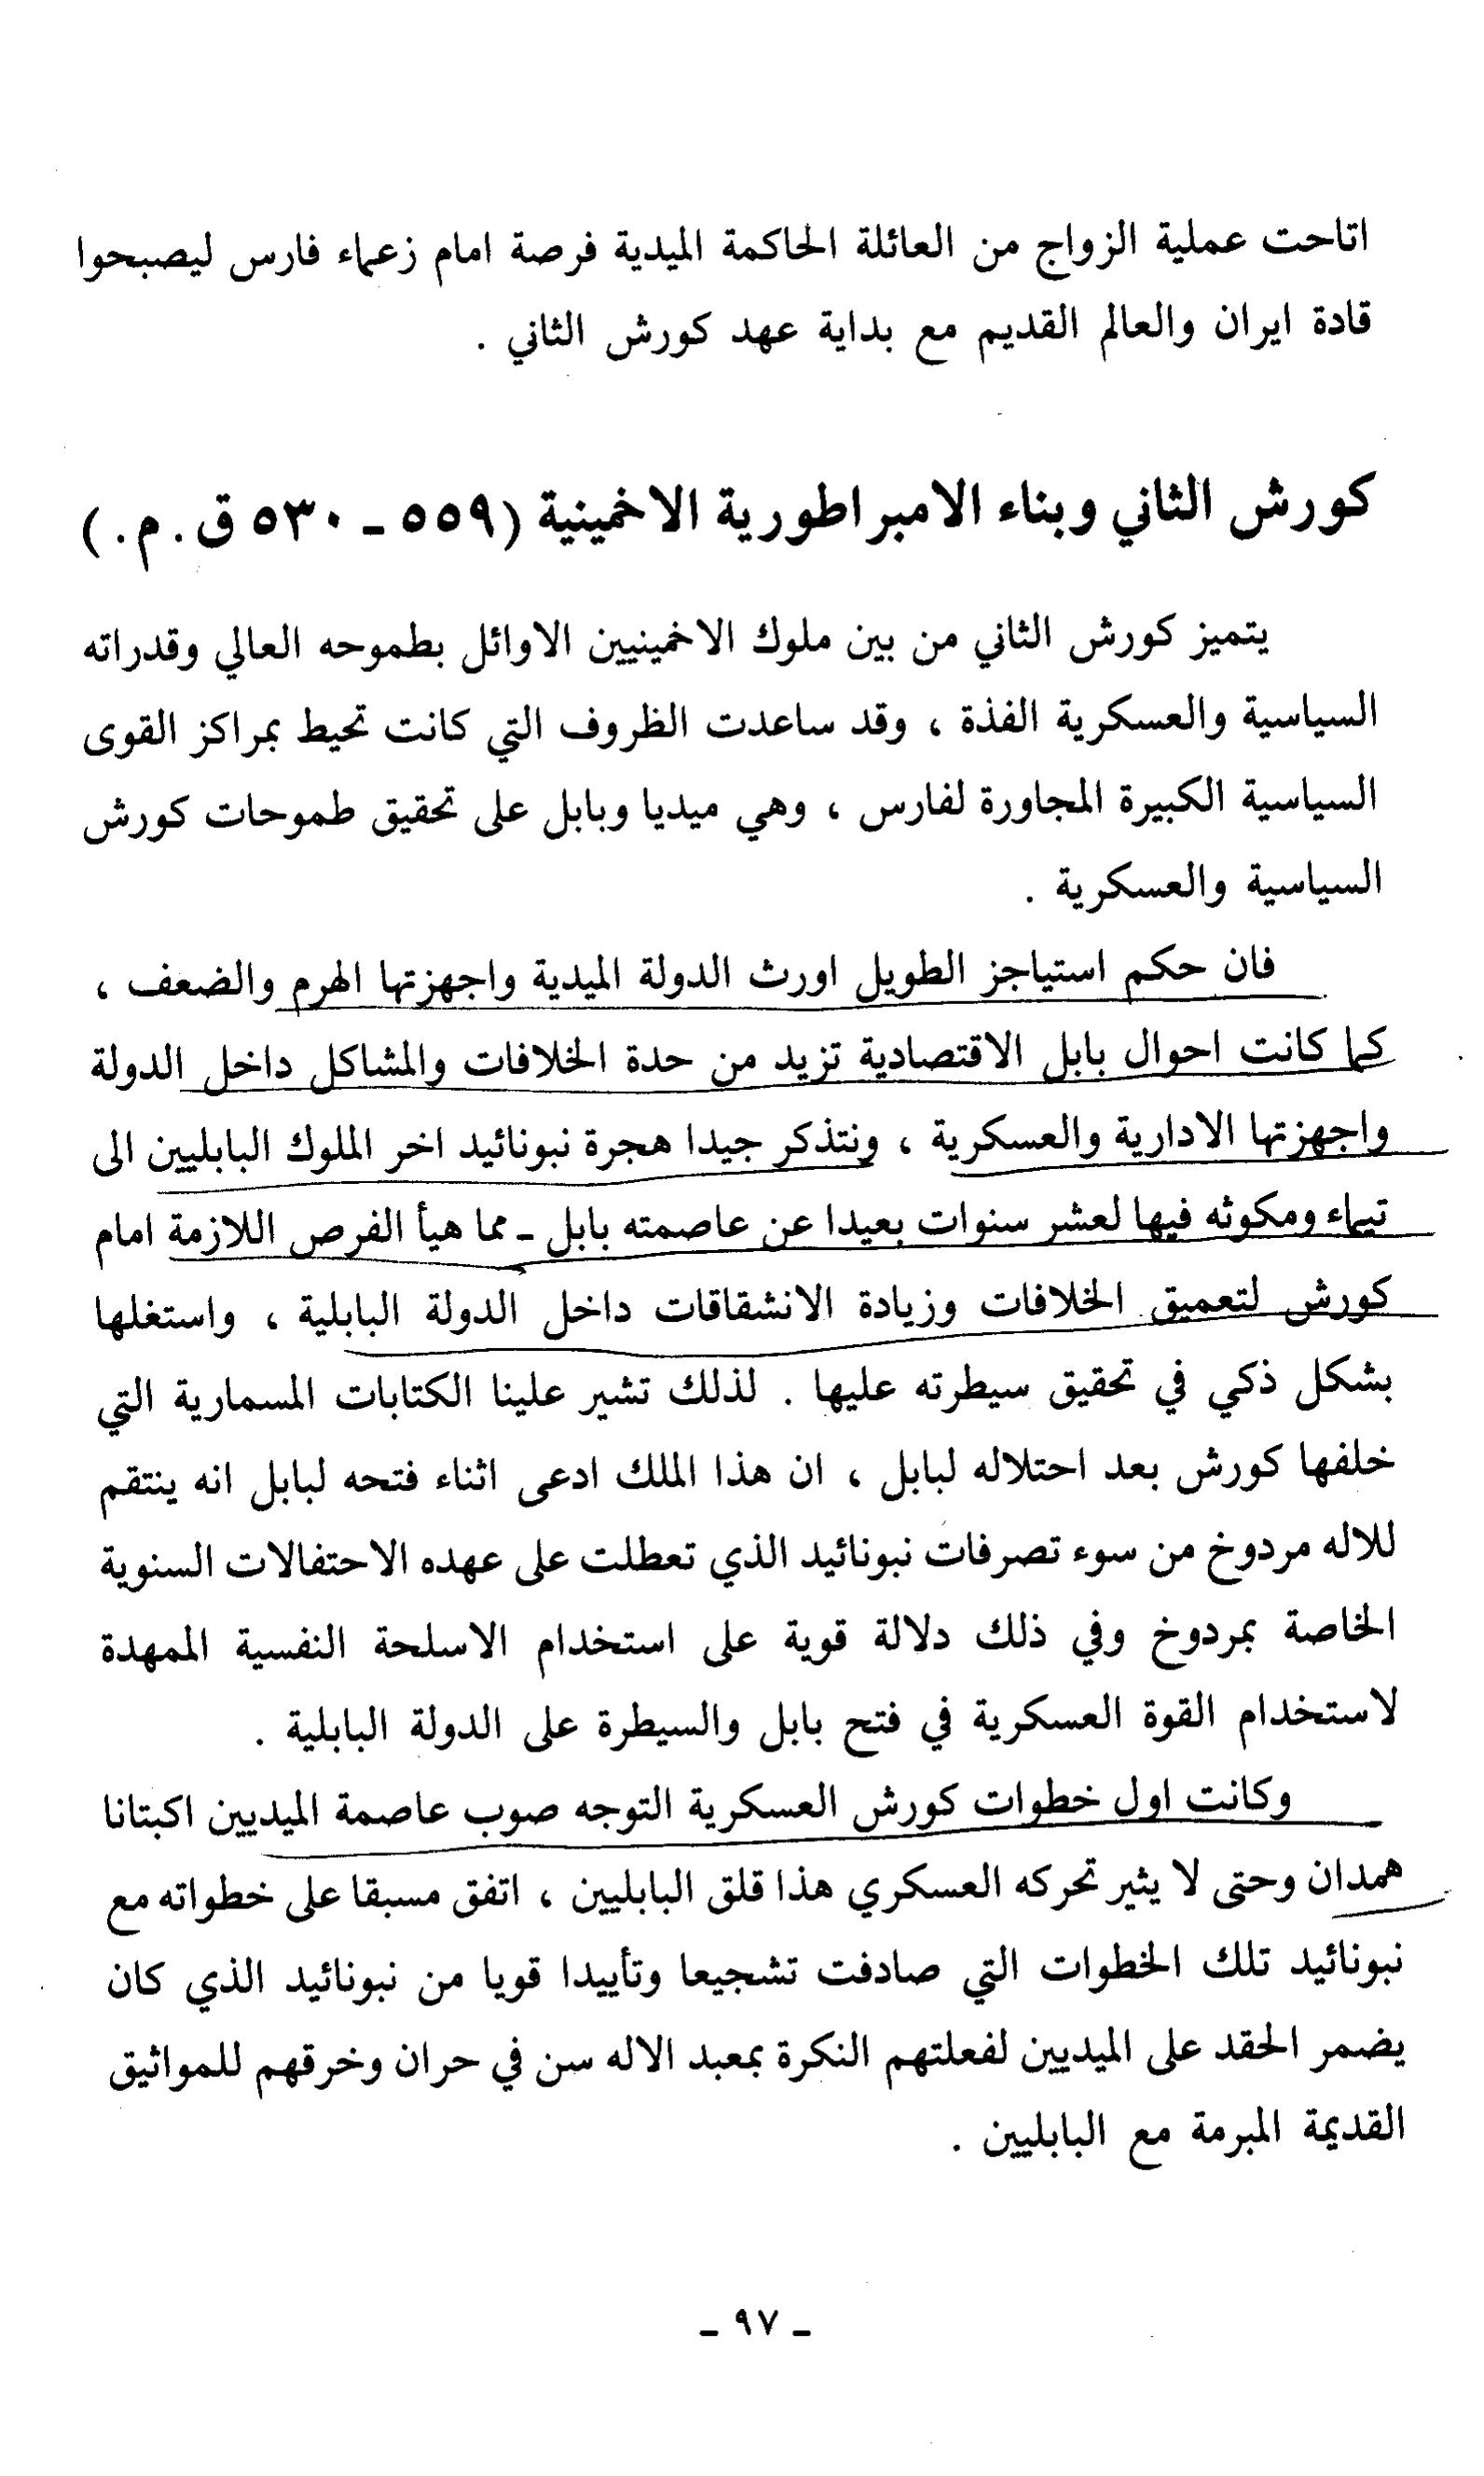 اتاحت عملية الزواج من العائلة الحاكمة الميدية فرصة امام زعماء فارس ليصبحوا
قادة ايران والعالم القديم مع بداية عهد كورش الثاني .
كورش الثاني وبناء الامبراطورية الاخمينية (٥٥٩ - ٥٣٠ ق.م.)
يتميز كورش الثاني من بين ملوك الاخمينيين الاوائل بطموحه العالي وقدراته
السياسية والعسكرية الفذة ، وقد ساعدت الظروف التي كانت تحيط بمراكز القوى
السياسية الكبيرة المجاورة لفارس ، وهي ميديا وبابل على تحقيق طموحات كورش
السياسية والعسكرية .
فان حكم استياجز الطويل اورث الدولة الميدية واجهزتها الهرم والضعف ،
كما كانت احوال بابل الاقتصادية تزيد من حدة الخلافات والمشاكل داخل الدولة
واجهزتها الادارية والعسكرية ، ونتذكر جيدا هجرة نبونائيد اخر الملوك البابليين الى
تيماء ومكوثه فيها لعشر سنوات بعيدا عن عاصمته بابل - مما هيأ الفرص اللازمة امام
كورش لتعميق الخلافات وزيادة الانشقاقات داخل الدولة البابلية ، واستغلها
بشكل ذكي في تحقيق سيطرته عليها . لذلك تشير علينا الكتابات المسمارية التي
خلفها كورش بعد احتلاله لبابل ، ان هذا الملك ادعى اثناء فتحه لبابل انه ينتقم
للاله مردوخ من سوء تصرفات نبونائيد الذي تعطلت على عهده الاحتفالات السنوية
الخاصة بمردوخ وفي ذلك دلالة قوية على استخدام الاسلحة النفسية الممهدة
لاستخدام القوة العسكرية في فتح بابل والسيطرة على الدولة البابلية .
وكانت اول خطوات كورش العسكرية التوجه صوب عاصمة الميديين اكبتانا
همدان وحتى لا يثير تحركه العسكري هذا قلق البابليين ، اتفق مسبقا على خطواته مع
نبونائيد تلك الخطوات التي صادفت تشجيعا وتأييدا قويا من نبونائيد الذي كان
يضمر الحقد على الميديين لفعلتهم النكرة بمعبد الاله سن في حران وخرقهم للمواثيق
القديمة المبرمة مع البابليين .
- ٩٧ -